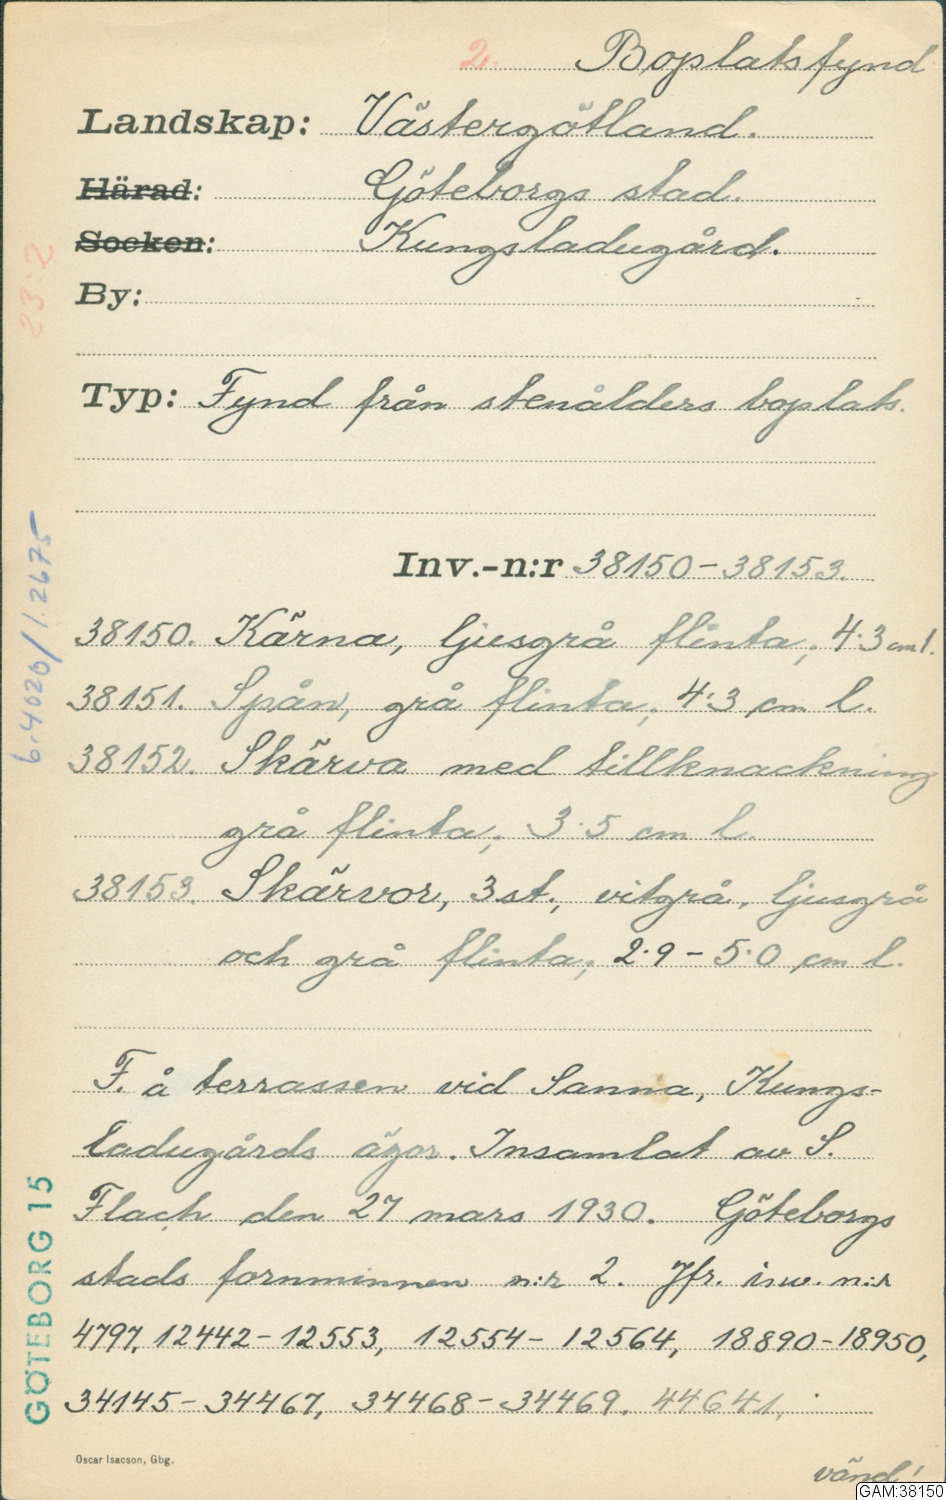 2. Boplatsfynd
Landskap: Västergötland.
Härad: Göteborgs stad.
Socken: Kungsladugård.
By:
Typ: Fynd från stenålders boplats.
Inv.-n:r 38150-38153.
38150. Kärna, ljusgrå flinta, 4.3 cm l.
38151. Spån, grå flinta, 4.3 cm l.
38152. Skärva med tillknackning
grå flinta, 3.5 cm l.
38153. Skärvor, 3 st., vitgrå, ljusgrå
och grå flinta, 2.9 - 5.0 cm l.
F. å terrassen vid Sanna, Kungs-
ladugårds ägor. Insamlat av S.
Flach den 27 mars 1930. Göteborgs
stads fornminnen n:r 2. Jfr. inv. n:r
4797, 12442-12553, 12554-12564, 18890-18950,
34145-34467, 34468-34469. 44641,
Oscar Isacson, Gbg.
vänd!
GAM:38150
23:2
6.4020/1.2675
GÖTEBORG 15